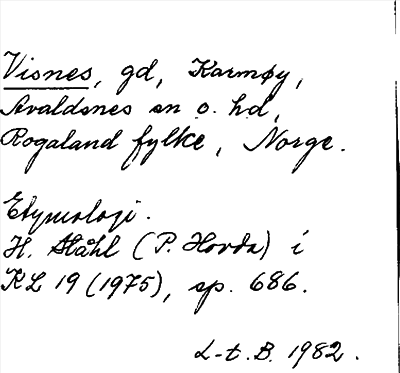 Visnes, gd, Karmøy,
Avaldsnes sn o. hd,
Rogaland fylke, Norge.
Etymologi.
H. Ståhl (P. Hovda) i
KL 19 (1975), sp. 686.
L-t. B. 1982.